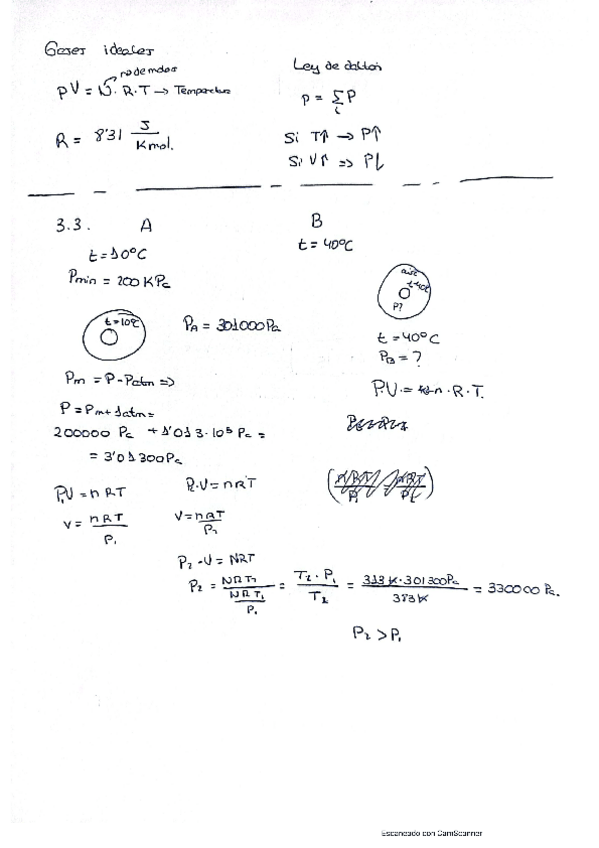 Gases ideales
nº de moles
PV = N · R · T → Temperatura
R = 8'31 J / K mol.
Ley de dalton
P = Σ P
i
Si T↑ → P↑
Si V↑ => P↓
3.3. A
t = 10ºC
Pmin = 200 KPa
t=10ºC
PA = 301000 Pa
Pm = P - Patm =>
P = Pm + 1atm =
200000 Pa + 1'013·10⁵ Pa =
= 3'01300 Pa
P₁V = n RT
V = nRT / P₁
B
t = 40ºC
aire
t=40ºC
P?
t = 40ºC
PB = ?
P.V. = n · R · T.
P₂·V = nRT
V = nRT / P₂
P₂ · V = NRT
P₂ = NRT₂ / (NRT₁ / P₁) = T₂ · P₁ / T₁ = 313 K · 301300 Pa / 283 K = 330000 Pa.
P₂ > P₁
Escaneado con CamScanner